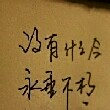 没有什么
永垂不朽